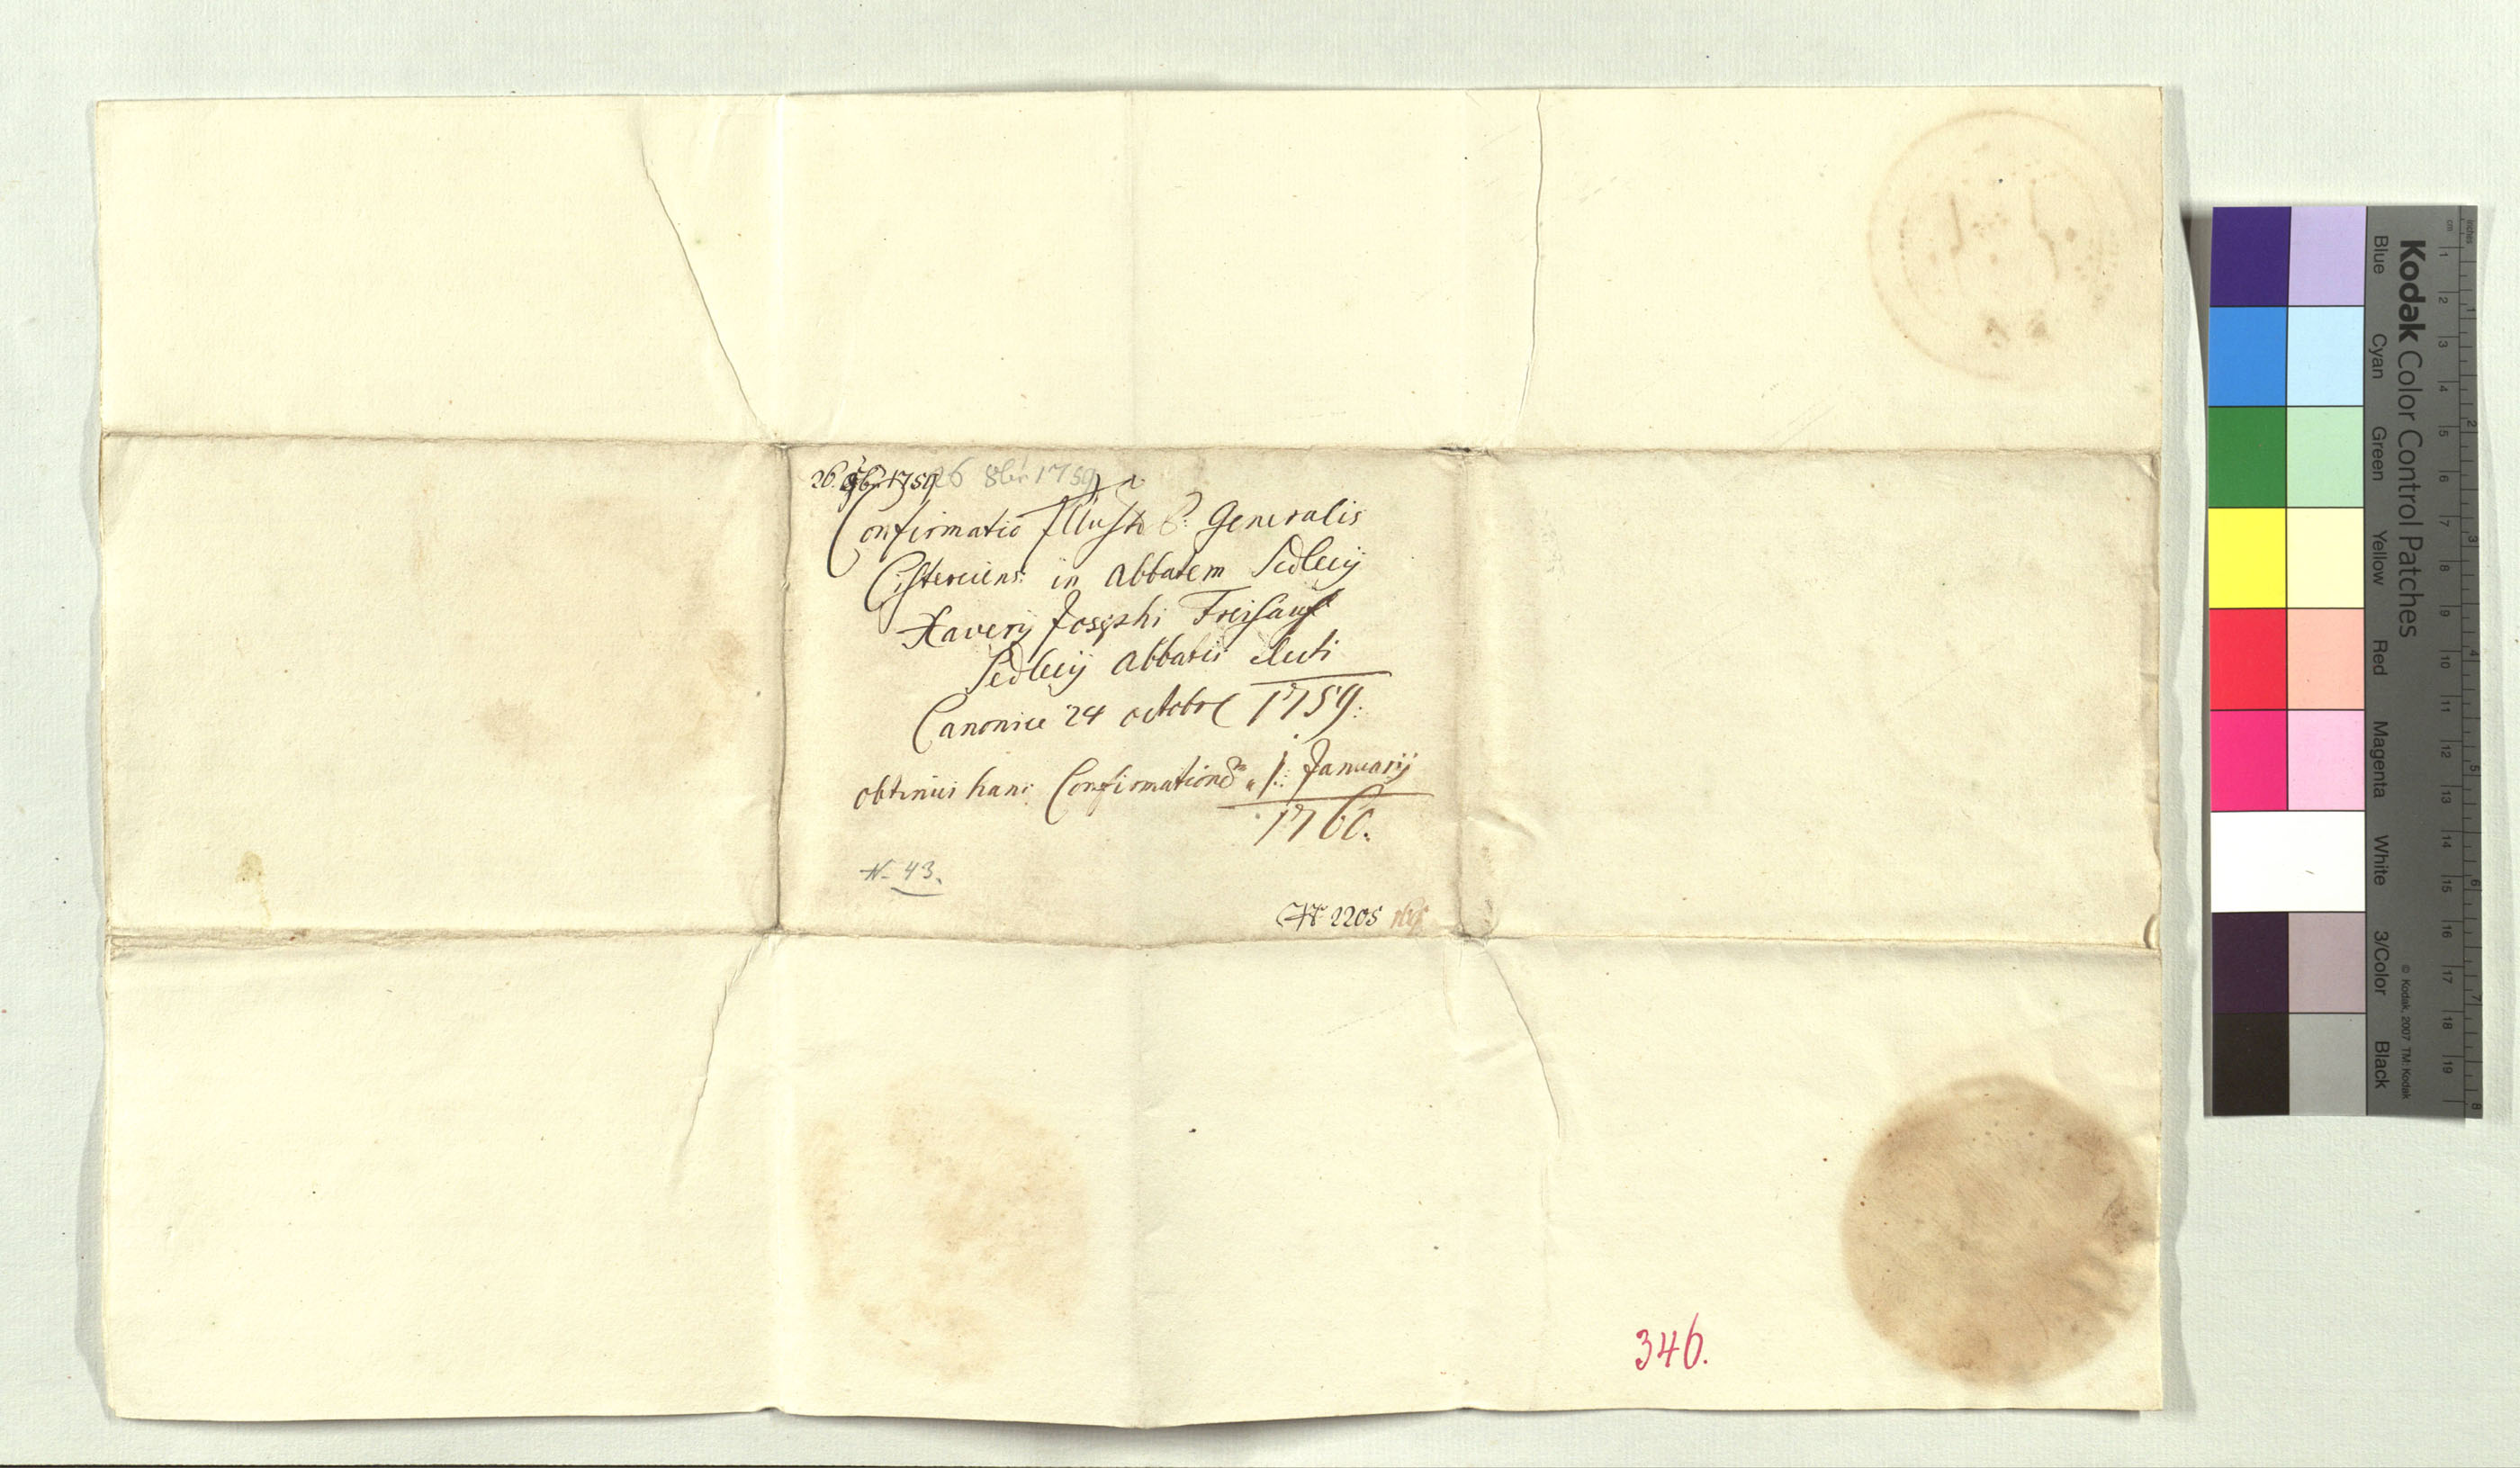 26. 8br 1759 26 8br 1759
Confirmatio Illust: Generalis
Cisterciens: in Abbatem Sedlecij
Xaverij Josephi Freisauf
Sedlecij Abbatis electi
Canonice 24 octobre 1759.
obtinui hanc Confirmationē 1. Januarij
1760.
N. 43.
2205
346.
Kodak Color Control Patches
Blue Cyan Green Yellow Red Magenta White 3/Color Black
© Kodak, 2007 TM: Kodak
inches 1 2 3 4 5 6 7 8
cm 1 2 3 4 5 6 7 8 9 10 11 12 13 14 15 16 17 18 19